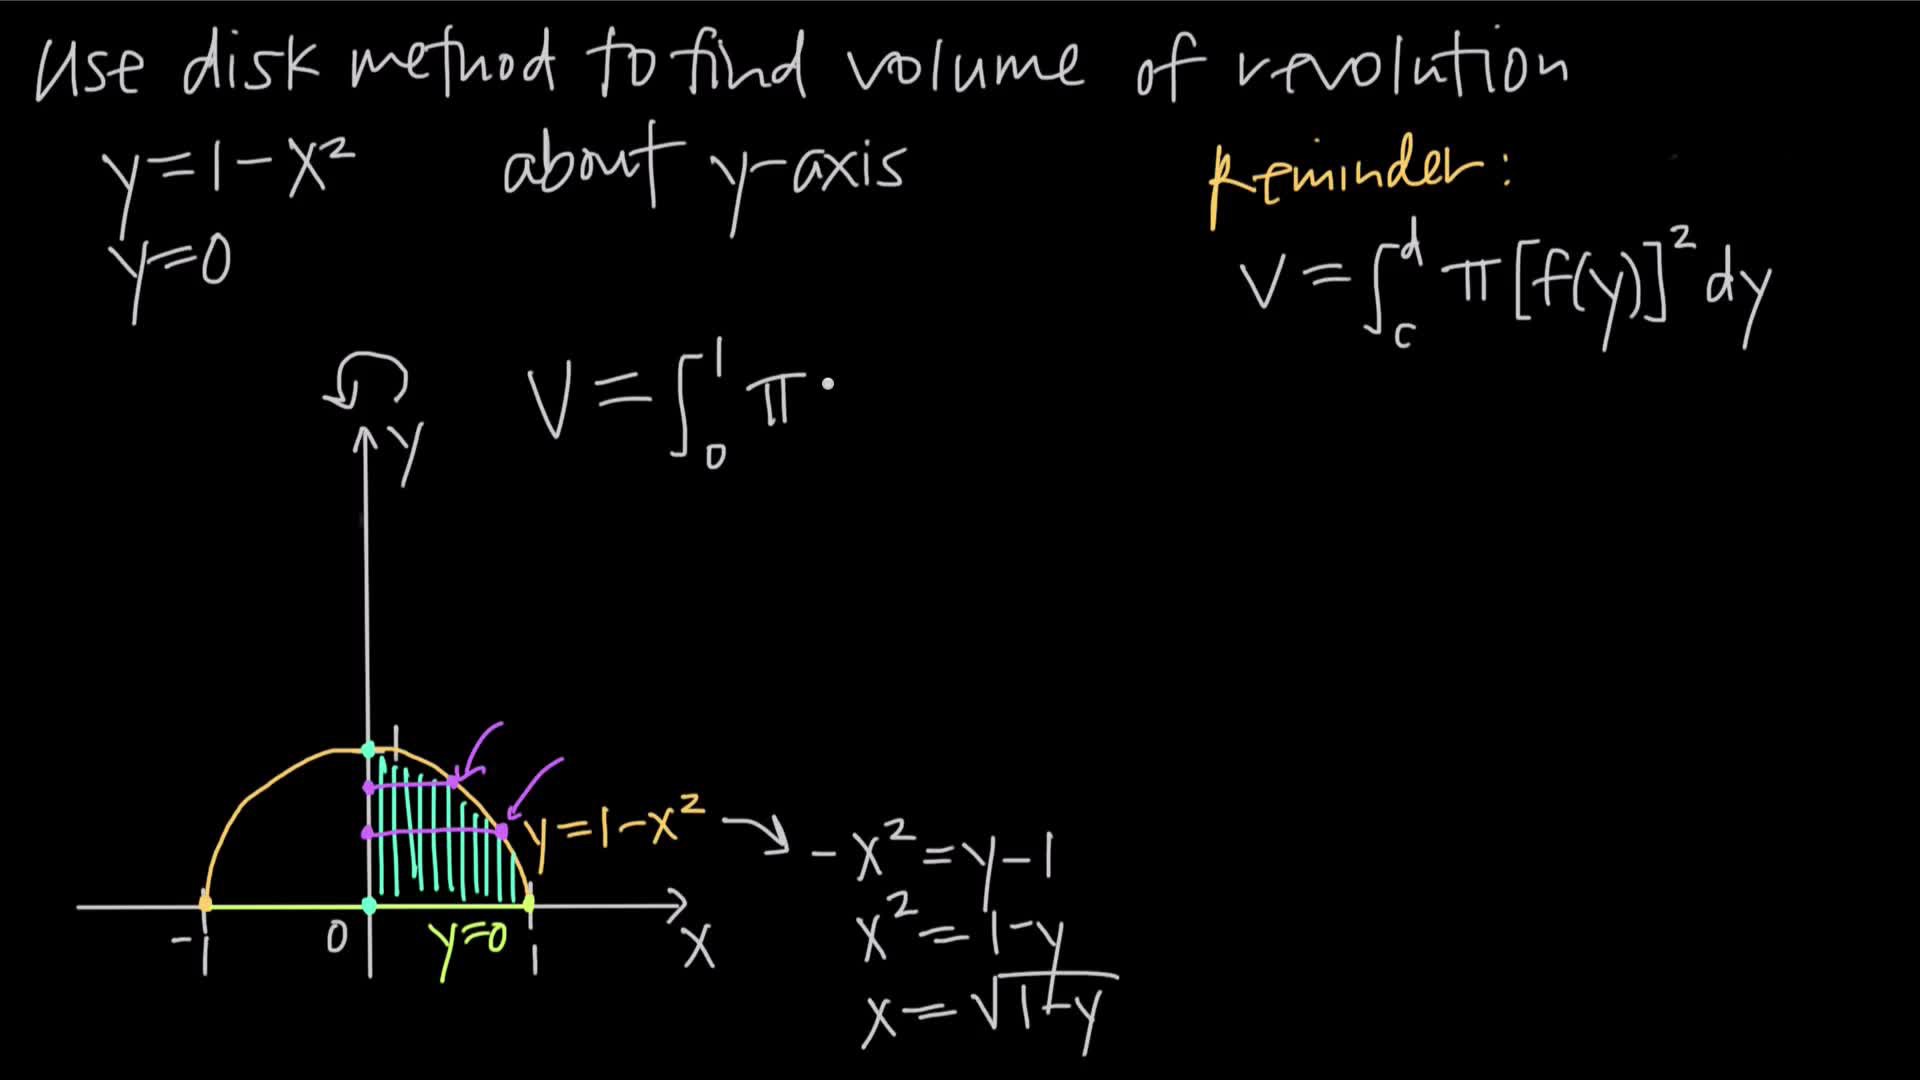 Use disk method to find volume of revolution
y=1-x² about y-axis
y=0
Reminder:
V=∫_c^d π[f(y)]²dy
V=∫_0^1 π
y
1
y=1-x²
-x²=y-1
x²=1-y
x=√1-y
-1 0 y=0 1 x